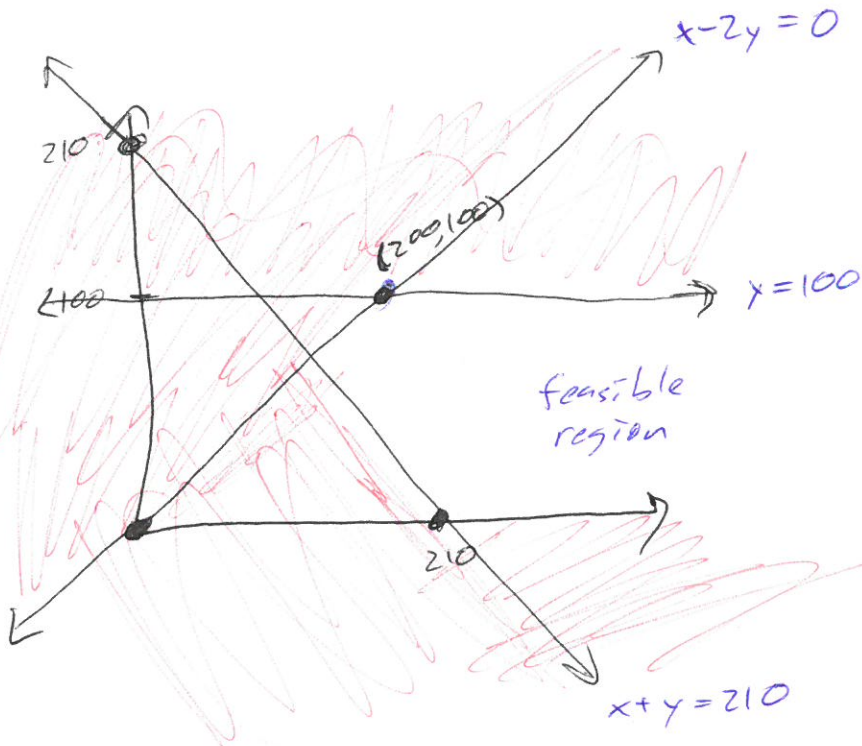 x-2y=0
210
(200,100)
100
y=100
feasible
region
210
x+y=210